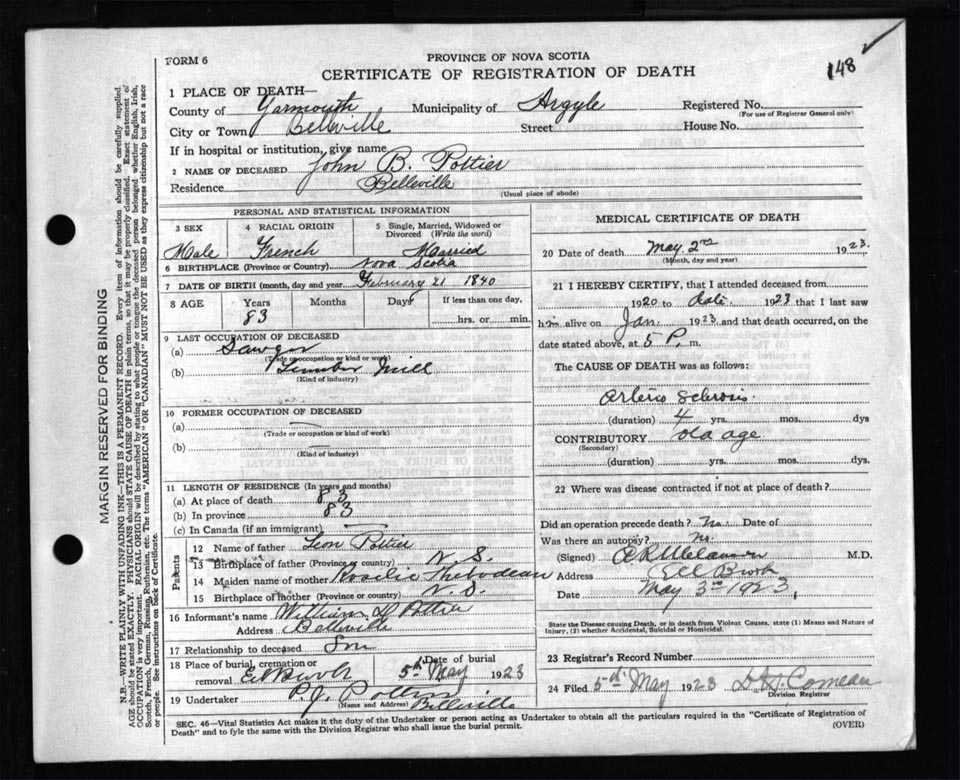 148
FORM 6
PROVINCE OF NOVA SCOTIA
CERTIFICATE OF REGISTRATION OF DEATH
1 PLACE OF DEATH—
County of Yarmouth Municipality of Argyle Registered No.
(For use of Registrar General only)
City or Town Belleville Street House No.
If in hospital or institution, give name
2 NAME OF DECEASED John B. Pottier
Residence Belleville
(Usual place of abode)
PERSONAL AND STATISTICAL INFORMATION
3 SEX 4 RACIAL ORIGIN 5 Single, Married, Widowed or Divorced (Write the word)
Male French Married
6 BIRTHPLACE (Province or Country) Nova Scotia
7 DATE OF BIRTH (month, day and year) February 21 1840
8 AGE Years Months Days If less than one day,
83 hrs. or min.
9 LAST OCCUPATION OF DECEASED
(a) Sawyer
(Trade or occupation or kind of work)
(b) Lumber Mill
(Kind of industry)
10 FORMER OCCUPATION OF DECEASED
(a) —
(Trade or occupation or kind of work)
(b) —
(Kind of industry)
11 LENGTH OF RESIDENCE (In years and months)
(a) At place of death 83
(b) In province 83
(c) In Canada (if an immigrant) —
Parents
12 Name of father Leon Pottier
13 Birthplace of father (Province or country) N. S.
14 Maiden name of mother Rosalie Thebodeau
15 Birthplace of mother (Province or country) N. S.
16 Informant's name William H Pottier
Address Belleville
17 Relationship to deceased Son
18 Place of burial, cremation or removal Eel Brook Date of burial 5th May 1923
19 Undertaker P. J. Pottier
(Name and Address) Belleville
MEDICAL CERTIFICATE OF DEATH
20 Date of death May 2nd 1923.
(Month, day and year)
21 I HEREBY CERTIFY, that I attended deceased from
1920 to date 1923 that I last saw
him alive on Jan. 1923 and that death occurred, on the
date stated above, at 5 P. m.
The CAUSE OF DEATH was as follows:
Arterio Sclerosis
(duration) 4 yrs. mos. dys
CONTRIBUTORY old age
(Secondary)
(duration) yrs. mos. dys.
22 Where was disease contracted if not at place of death?
Did an operation precede death? No. Date of
Was there an autopsy? No.
(Signed) M.D.
Address Eel Brook
Date May 3rd 1923,
State the Disease causing Death, or in death from Violent Causes, state (1) Means and Nature of Injury, (2) whether Accidental, Suicidal or Homicidal.
23 Registrar's Record Number
24 Filed 5th May 1923 Comeau
Division Registrar
SEC. 46—Vital Statistics Act makes it the duty of the Undertaker or person acting as Undertaker to obtain all the particulars required in the "Certificate of Registration of
Death" and to fyle the same with the Division Registrar who shall issue the burial permit.
(OVER)
MARGIN RESERVED FOR BINDING
N.B.—WRITE PLAINLY WITH UNFADING INK—THIS IS A PERMANENT RECORD. Every item of information should be carefully supplied.
AGE should be stated EXACTLY. PHYSICIANS should STATE CAUSE OF DEATH in plain terms, so that it may be properly classified. Exact statement of
OCCUPATION is very important. RACIAL ORIGIN will be described by stating to what people or tongue the deceased person belonged whether English, Irish,
Scotch, French, German, Russian, Ruthenian, etc. The terms "AMERICAN" OR "CANADIAN" MUST NOT BE USED as they express citizenship but not a race
or people. See instructions on back of Certificate.